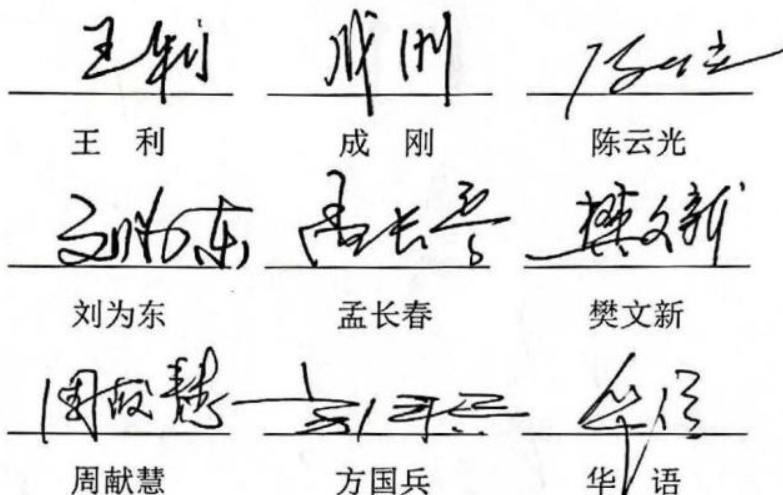 王利 成刚 陈云光
王 利 成 刚 陈云光
刘为东 孟长春 樊文新
刘为东 孟长春 樊文新
周献慧 方国兵 华语
周献慧 方国兵 华 语